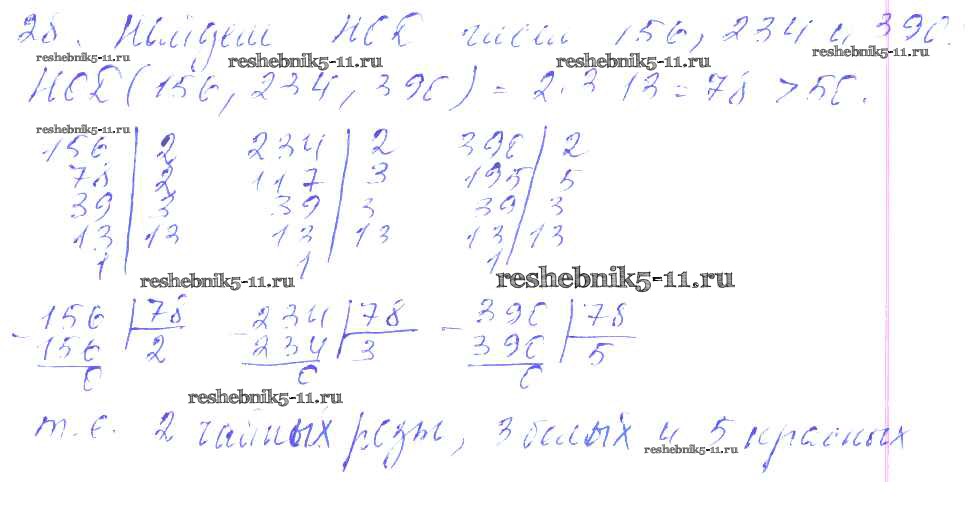 28. Найдем НОД чисел 156, 234 и 390.
reshebnik5-11.ru reshebnik5-11.ru reshebnik5-11.ru reshebnik5-11.ru
НОД (156, 234, 390) = 2·3 13 = 78 > 50.
reshebnik5-11.ru
156 | 2 234 | 2 390 | 2
78 | 2 117 | 3 195 | 5
39 | 3 39 | 3 39 | 3
13 | 13 13 | 13 13 | 13
1 | 1 | 1 |
reshebnik5-11.ru reshebnik5-11.ru
- 156 | 78 - 234 | 78 - 390 | 78
156 | 2 234 | 3 390 | 5
0 0 0
reshebnik5-11.ru
т.е. 2 чайных розы, 3 белых и 5 красных
reshebnik5-11.ru